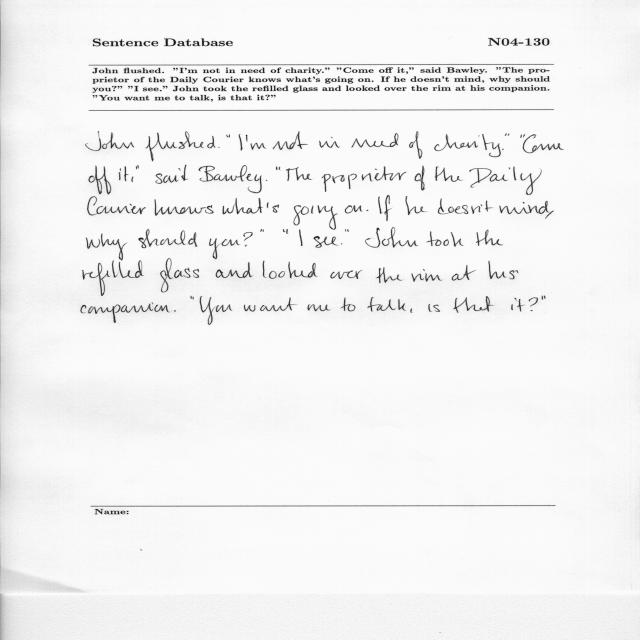 Sentence Database N04-130
John flushed. "I'm not in need of charity." "Come off it," said Bawley. "The pro-
prietor of the Daily Courier knows what's going on. If he doesn't mind, why should
you?" "I see." John took the refilled glass and looked over the rim at his companion.
"You want me to talk, is that it?"
John flushed. "I'm not in need of charity." "Come
off it," said Bawley. "The proprietor of the Daily
Courier knows what's going on. If he doesn't mind,
why should you?" "I see." John took the
refilled glass and looked over the rim at his
companion. "You want me to talk, is that it?"
Name: